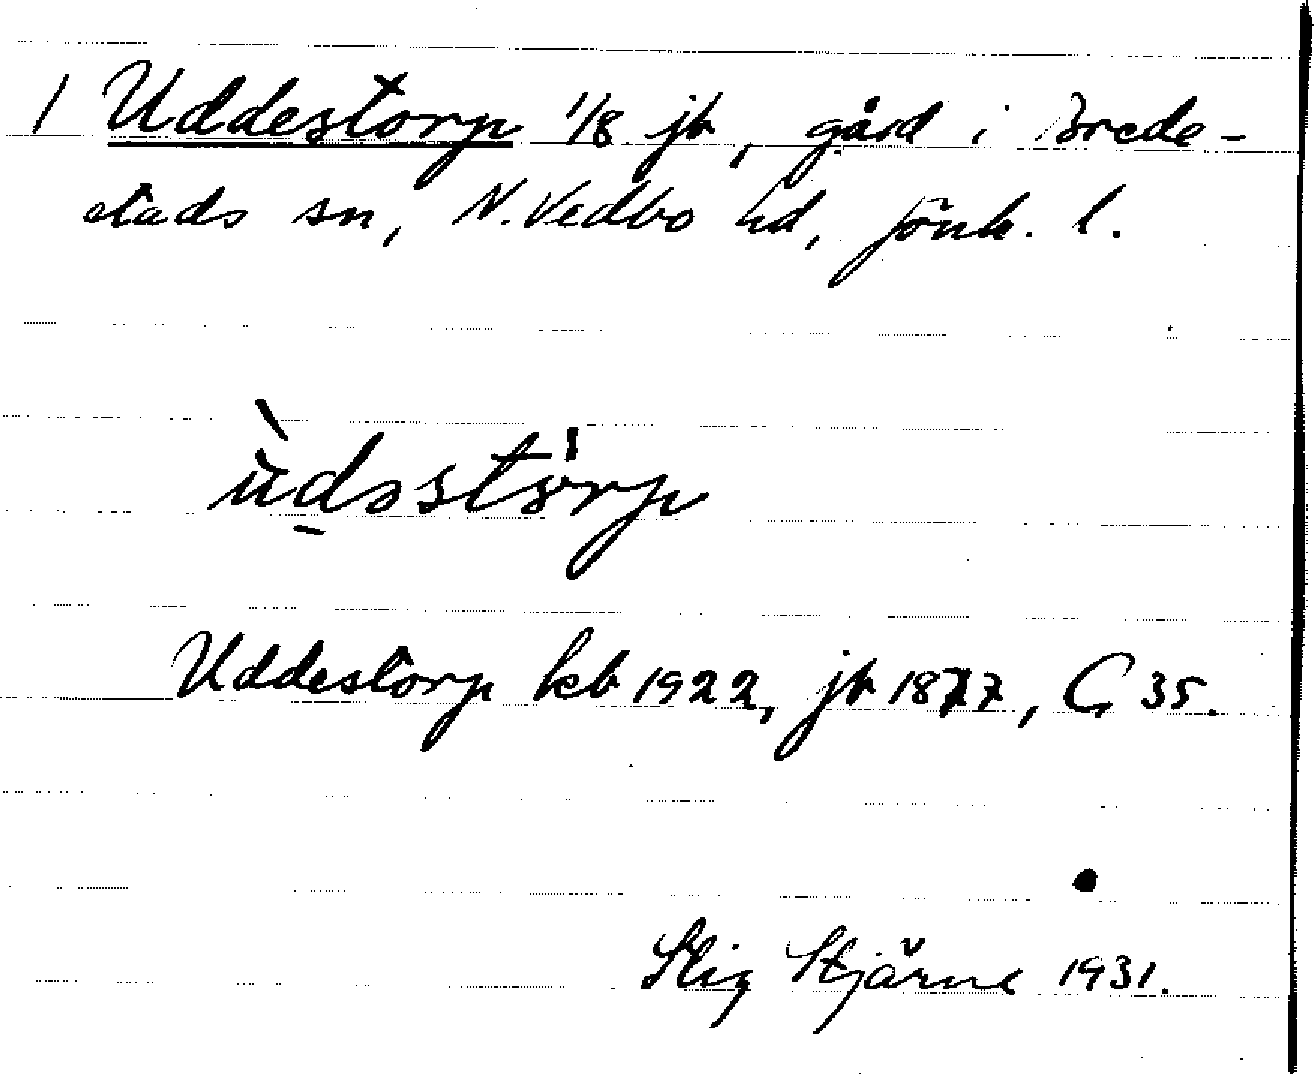 / Uddestorp 1/8 jb, gård i Brede-
stads sn, N. Vedbo hd, Jönk. l.
ùdəstórp
Uddestorp kb 1922, jb 1877, G 35.
Stig Stjärne 1931.